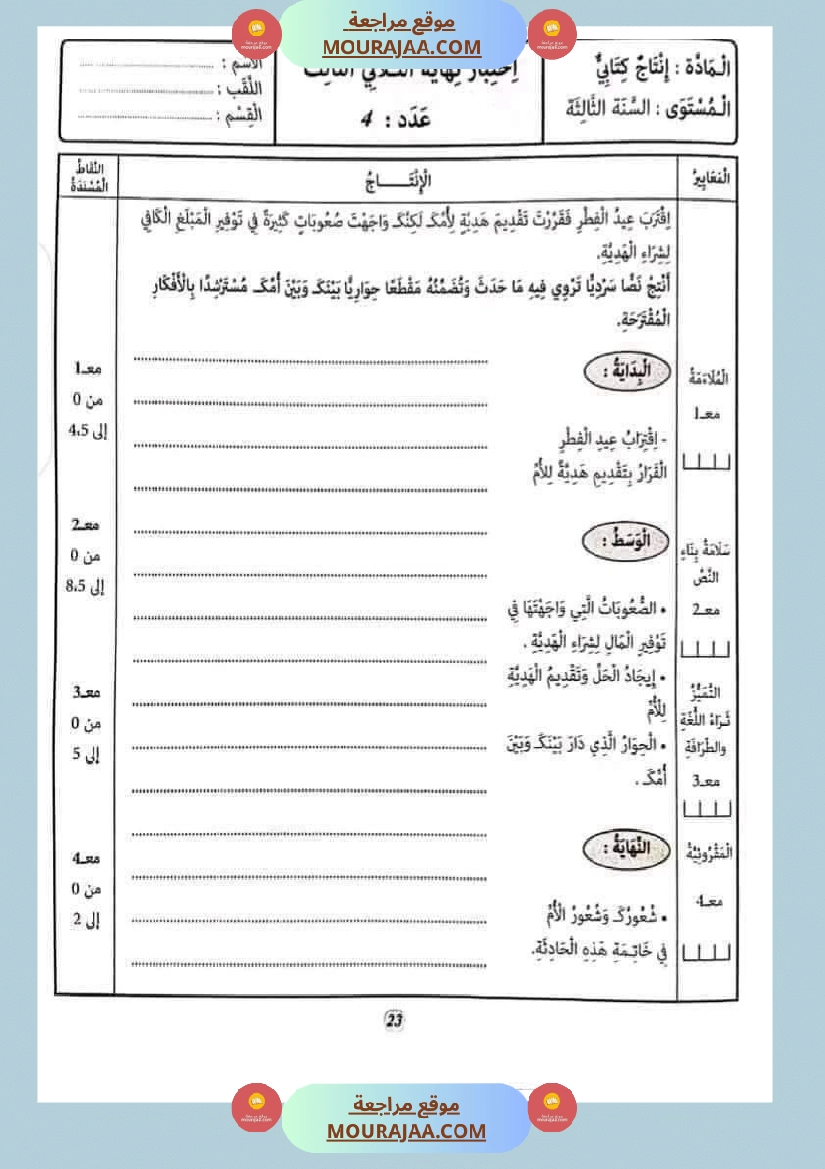 موقع مراجعة
MOURAJAA.COM
الْمَادَّة : إِنْتَاجٌ كِتَابِيٌّ
الْمُسْتَوَى : السَّنَة الثَّالِثَةَ
اِخْتِبَارُ نِهَايَةِ الثُّلَاثِي الثَّالِث
عَدَد : 4
الاسْم :
اللَّقَب :
الْقِسْم :
الْمَعَايِيرُ
الْإِنْتَـــــاجُ
النِّقَاطُ
الْمُسْنَدَةُ
اِقْتَرَبَ عِيدُ الْفِطْرِ فَقَرَّرْتَ تَقْدِيمَ هَدِيَّةٍ لِأُمِّكَ لَكِنَّكَ وَاجَهْتَ صُعُوبَاتٍ كَثِيرَةً فِي تَوْفِيرِ الْمَبْلَغِ الْكَافِي
لِشِرَاءِ الْهَدِيَّةِ.
أَنْتِجْ نَصًّا سَرْدِيًّا تَرْوِي فِيهِ مَا حَدَثَ وَتُضَمِّنُهُ مَقْطَعًا حِوَارِيًّا بَيْنَكَ وَبَيْنَ أُمِّكَ مُسْتَرْشِدًا بِالْأَفْكَارِ
الْمُقْتَرَحَةِ.
الْبِدَايَةُ :
- اِقْتِرَابُ عِيدِ الْفِطْرِ
الْقَرَارُ بِتَقْدِيمِ هَدِيَّةٍ لِلأُمِّ
الْوَسَطُ :
• الصُّعُوبَاتُ الَّتِي وَاجَهْتَهَا فِي
تَوْفِيرِ الْمَالِ لِشِرَاءِ الْهَدِيَّةِ .
• إِيجَادُ الْحَلِّ وَتَقْدِيمُ الْهَدِيَّةِ
لِلْأُمِّ
• الْحِوَارُ الَّذِي دَارَ بَيْنَكَ وَبَيْنَ
أُمِّكَ .
النِّهَايَةُ :
• شُعُورُكَ وَشُعُورُ الْأُمِّ
فِي خَاتِمَةِ هَذِهِ الْحَادِثَةِ.
الْمُلَاءَمَةُ
معـ1
سَلَامَةُ بِنَاءِ
النَّصِّ
معـ2
التَّمَيُّزُ
ثَرَاءُ اللُّغَةِ
والطَّرَافَةِ
معـ3
الْمَقْرُوئِيَّةُ
معـ4
معـ1
من 0
إلى 4،5
معـ2
من 0
إلى 8،5
معـ3
من 0
إلى 5
معـ4
من 0
إلى 2
23
موقع مراجعة
MOURAJAA.COM